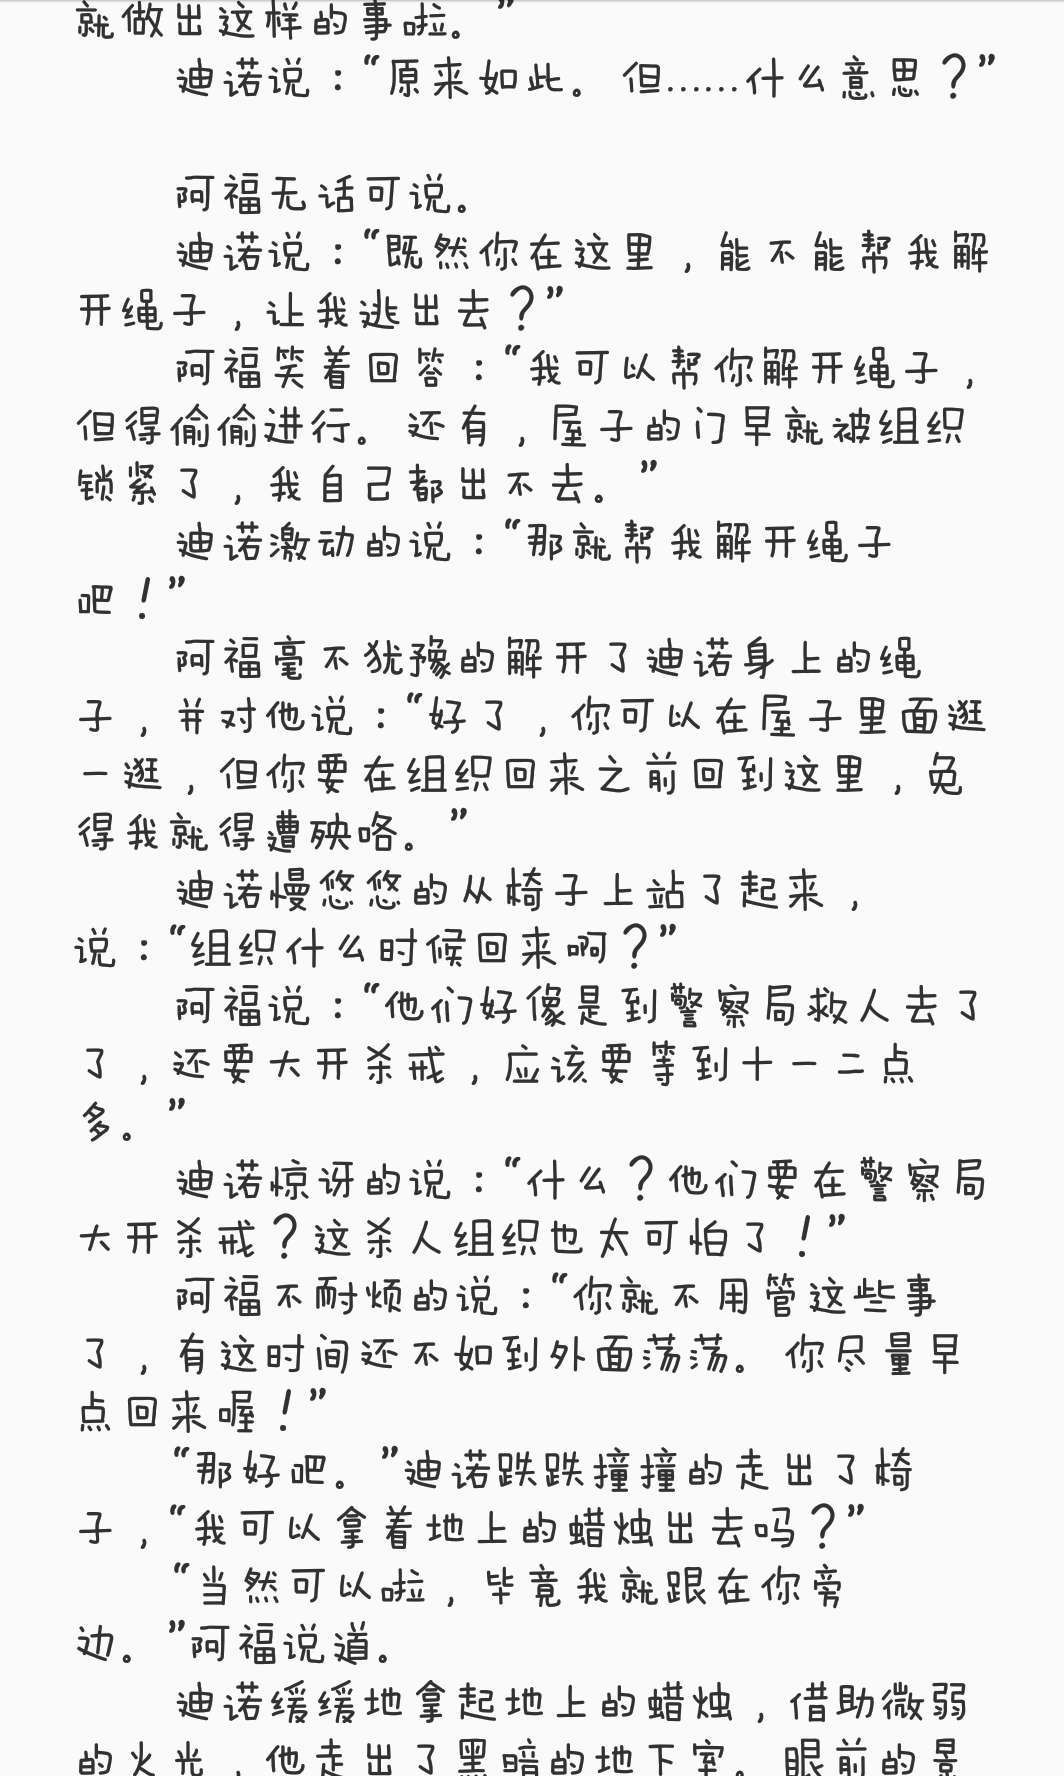 就做出这样的事啦。”
迪诺说：“原来如此。但……什么意思？”
阿福无话可说。
迪诺说：“既然你在这里，能不能帮我解
开绳子，让我逃出去？”
阿福笑着回答：“我可以帮你解开绳子，
但得偷偷进行。还有，屋子的门早就被组织
锁紧了，我自己都出不去。”
迪诺激动的说：“那就帮我解开绳子
吧！”
阿福毫不犹豫的解开了迪诺身上的绳
子，并对他说：“好了，你可以在屋子里面逛
一逛，但你要在组织回来之前回到这里，免
得我就得遭殃咯。”
迪诺慢悠悠的从椅子上站了起来，
说：“组织什么时候回来啊？”
阿福说：“他们好像是到警察局救人去了
了，还要大开杀戒，应该要等到十一二点
多。”
迪诺惊讶的说：“什么？他们要在警察局
大开杀戒？这杀人组织也太可怕了！”
阿福不耐烦的说：“你就不用管这些事
了，有这时间还不如到外面荡荡。你尽量早
点回来喔！”
“那好吧。”迪诺跌跌撞撞的走出了椅
子，“我可以拿着地上的蜡烛出去吗？”
“当然可以啦，毕竟我就跟在你旁
边。”阿福说道。
迪诺缓缓地拿起地上的蜡烛，借助微弱
的火光，他走出了黑暗的地下室。眼前的景